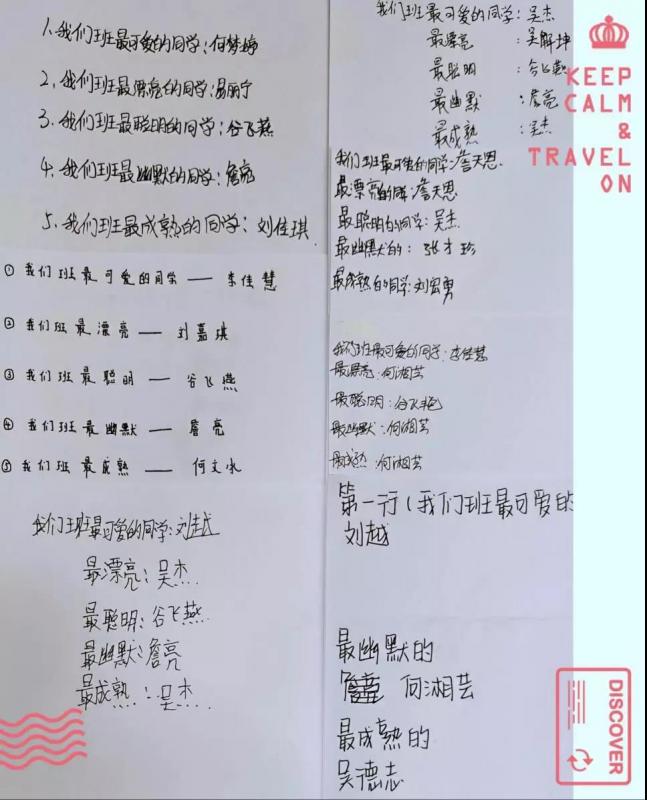 1、我们班最可爱的同学:何梦婷
2、我们班最漂亮的同学:易丽宁
3、我们班最聪明的同学:谷飞燕
4、我们班最幽默的同学:詹亮
5、我们班最成熟的同学:刘佳琪
① 我们班最可爱的同学——李佳慧
② 我们班最漂亮——刘嘉琪
③ 我们班最聪明——谷飞燕
④ 我们班最幽默——詹亮
⑤ 我们班最成熟——何文冰
我们班最可爱的同学:刘越
最漂亮:吴杰
最聪明:谷飞燕
最幽默:詹亮
最成熟:吴杰
我们班最可爱的同学:吴杰
最漂亮:吴解坤
最聪明:谷飞燕
最幽默:詹亮
最成熟:吴杰
我们班最可爱的同学:詹天恩
最漂亮的同学:詹天恩
最聪明的同学:吴杰
最幽默的:张才珍
最成熟的同学:刘宏勇
我们班最可爱的同学:李佳慧
最漂亮:何湘芸
最聪明:谷飞艳
最幽默:何湘芸
最成熟:何湘芸
第一行(我们班最可爱的
刘越
最幽默的
何湘芸
最成熟的
吴德志
KEEP
CALM
&
TRAVEL
ON
DISCOVER